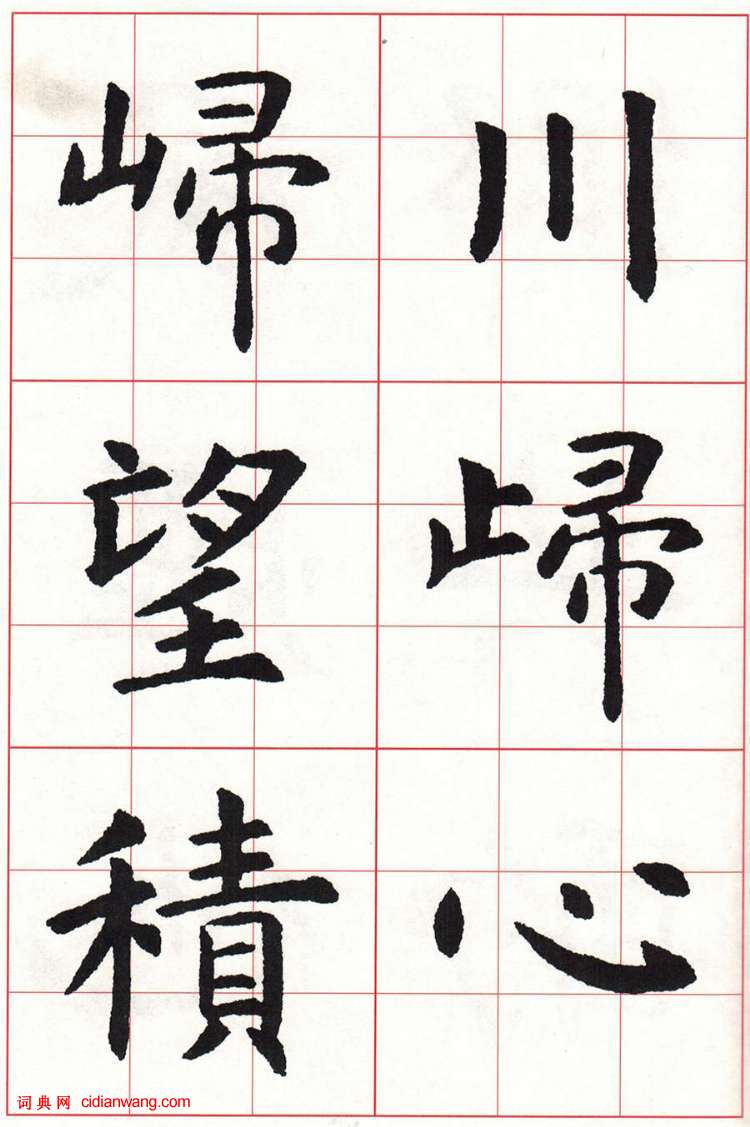 川㱕心
㱕望積
词典网 cidianwang.com